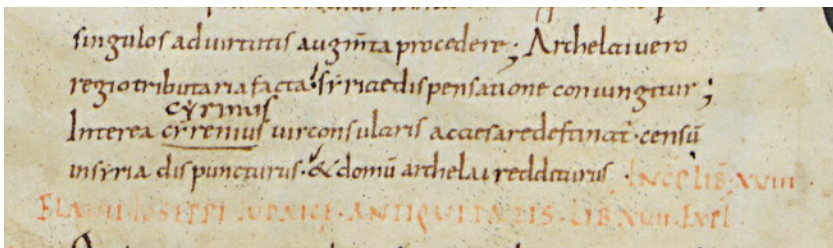 singulos ad uirtutis augm̅ta procedere; Archelai uero
regio tributaria facta syriae dispensatione coniungitur;
cyrinus
Interea cyrenius uir consularis a caesare destinat̅ censū
in syria dispuncturus & domū archelai redditurus. INCP LIB XVIII
FLAUII IOSEPPI IUDAICĘ ANTIQUITATIS LIB XVII EXPL